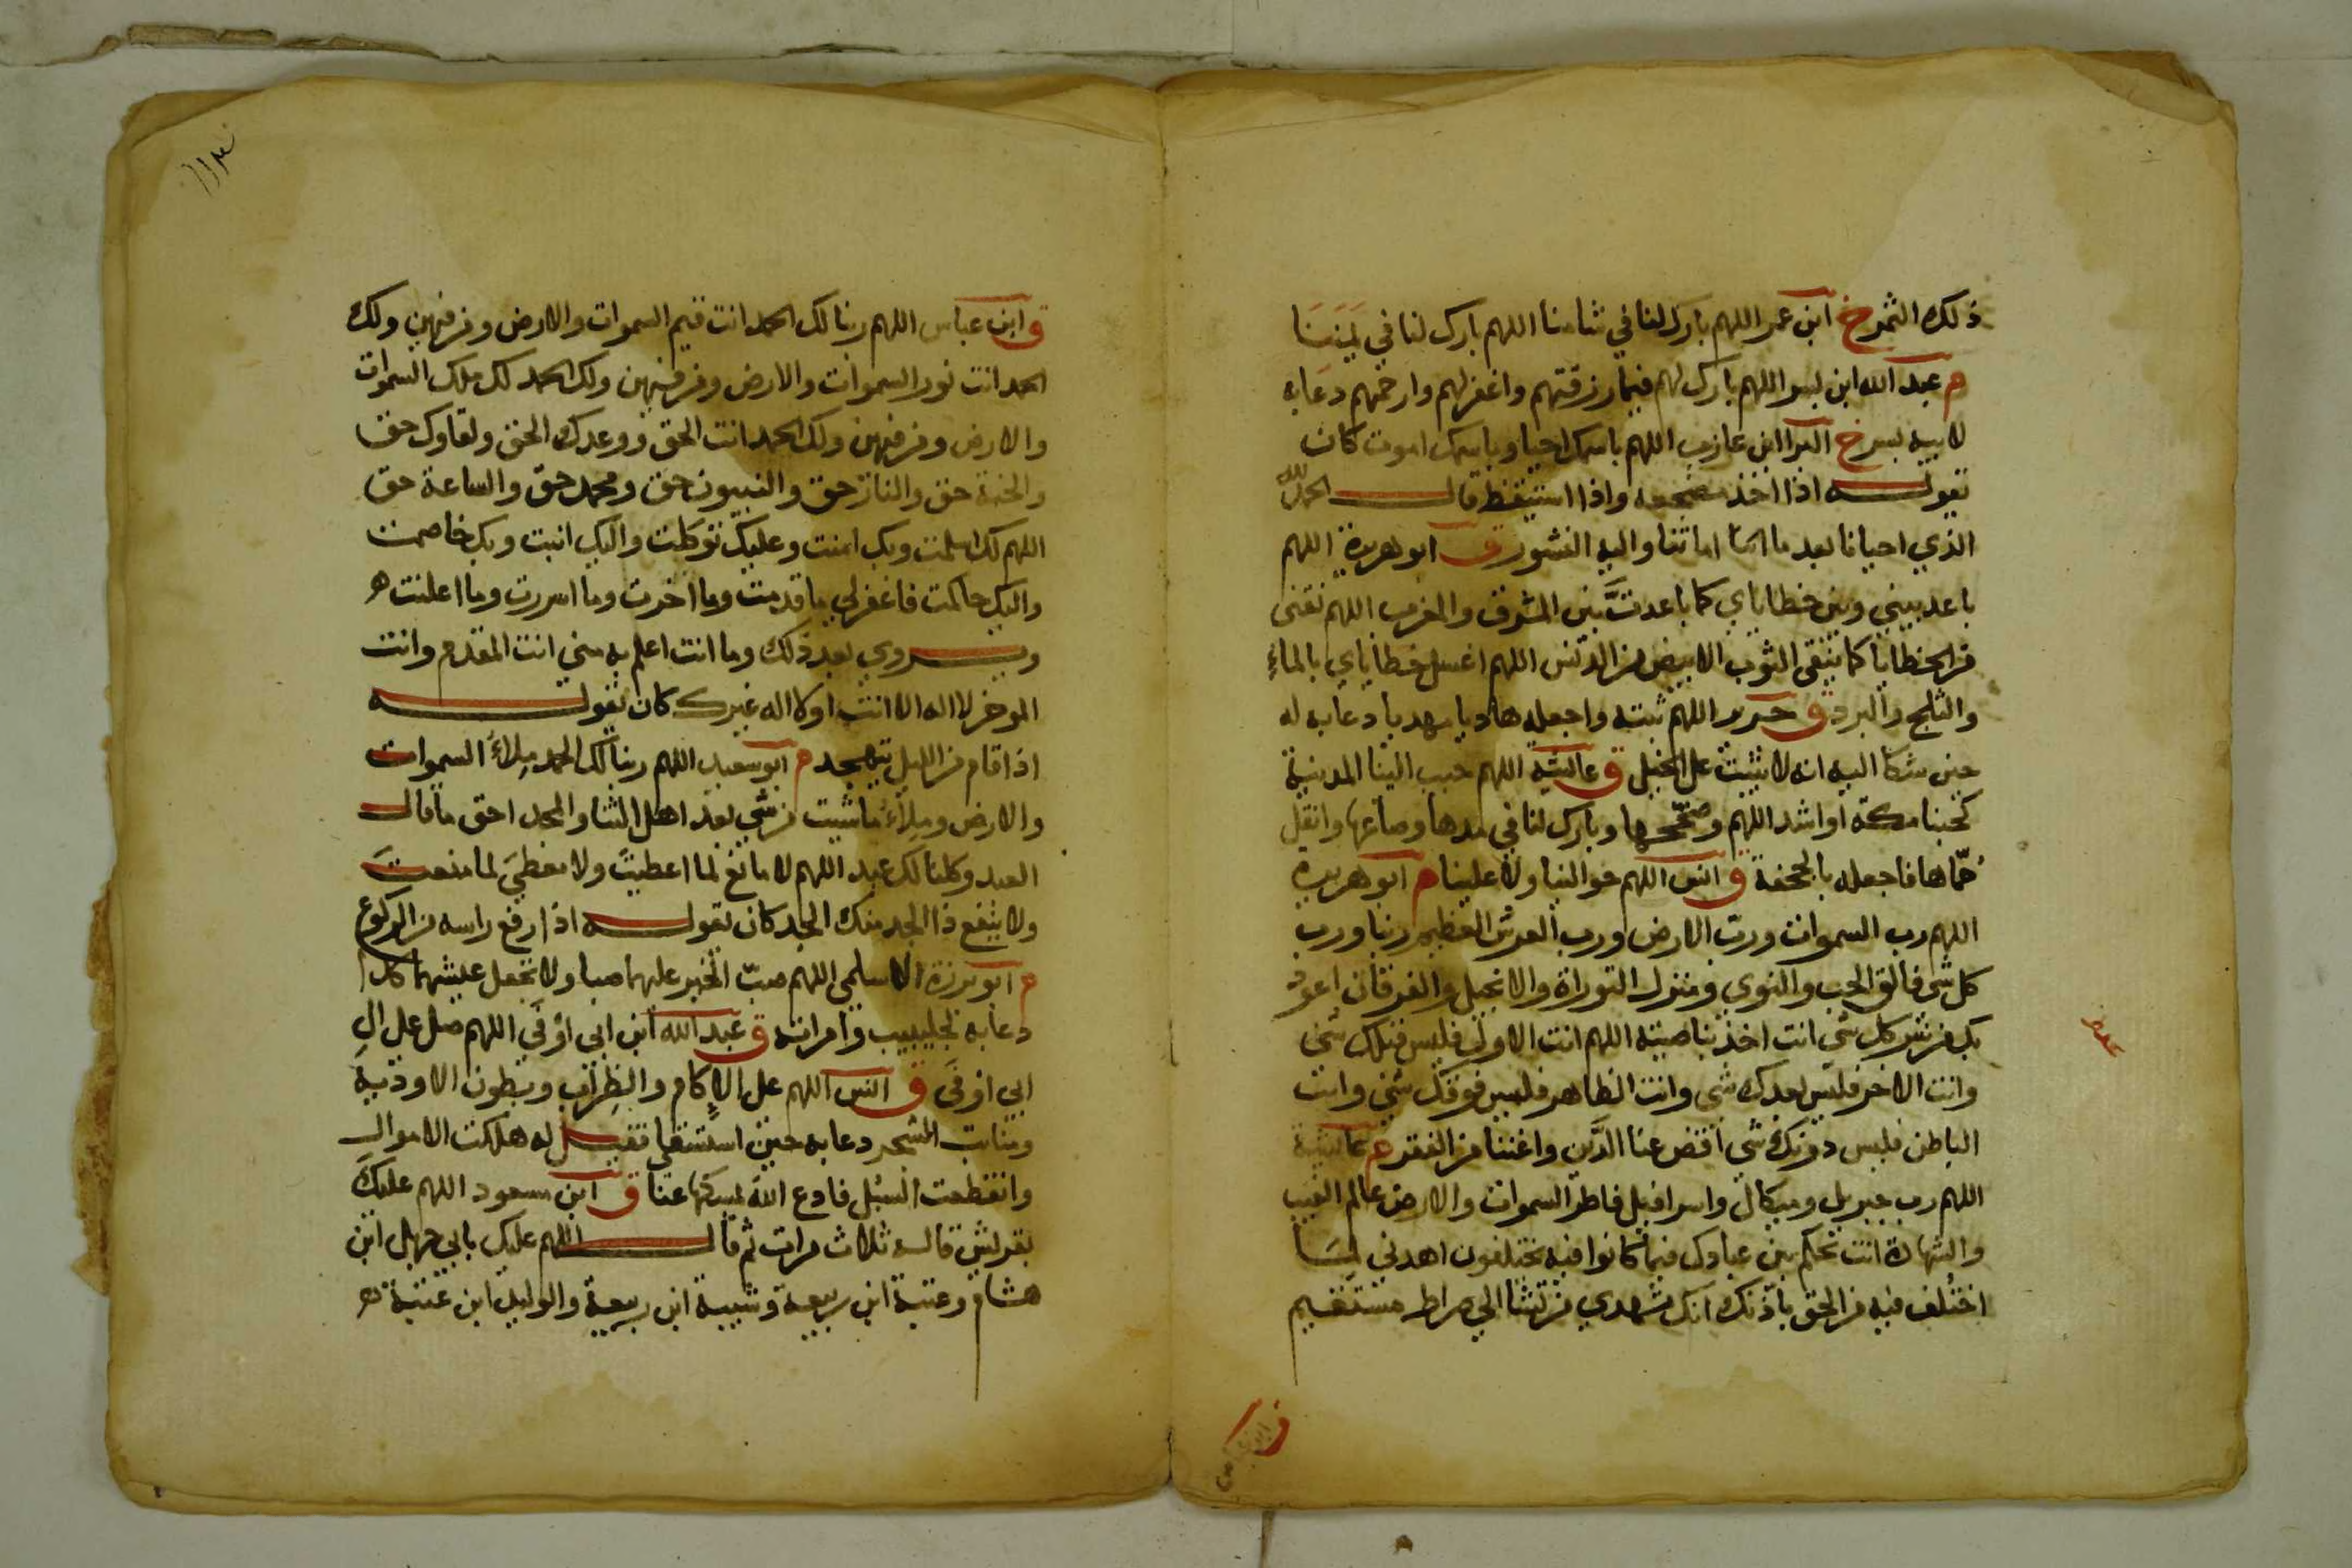 ذلك الثمر خ ابن عمر اللهم بارك لنا في شامنا اللهم بارك لنا في يَمَنِنَا
م عبد الله ابن بسر اللهم بارك لهم فيما رزقتهم واغفر لهم وارحمهم دعا به
لابيه بسر خ البرا ابن عازب اللهم باسمك احيا وباسمك اموت كان
يقوله اذا اخذ مضجعه واذا استيقظ قال الحمد لله
الذي احيانا بعد ما اماتنا واليه النشور ق ابو هريرة اللهم
باعد بيني وبين خطاياي كما باعدت بين المشرق والمغرب اللهم نقنى
من الخطايا كما ينقى الثوب الابيض من الدنس اللهم اغسل خطاياي بالماء
والثلج والبرد ق جرير اللهم ثبته واجعله هاديا مهديا دعا به له
حين شكا اليه انه لا يثبت على الخيل ق عايشة اللهم حبب الينا المدينة
كحبنا مكة او اشد اللهم وصححها وبارك لنا في مدها وصاعها وانقل
حُمّاها فاجعله بالجحفة ق انس اللهم حوالينا ولا علينا م ابو هريرة
اللهم رب السموات ورب الارض ورب العرش العظيم ربنا ورب
كل شى فالق الحب والنوي ومنزل التوراة والانجيل والفرقان اعوذ
بك من شر كل شى انت اخذ بناصيته اللهم انت الاول فليس قبلك شى
وانت الاخر فليس بعدك شى وانت الظاهر فليس فوقك شى وانت
الباطن فليس دونك شى اقض عنا الدَّين واغننا من الفقر م عايشة
اللهم رب جبريل وميكال واسرافيل فاطر السموات والارض عالم الغيب
والشهادة انت تحكم بين عبادك فيما كانوا فيه يختلفون اهدني لما
اختُلف فيه من الحق باذنك انك تهدي من تشا الي صراط مستقيم
ق ابن عباس
ق ابن عباس اللهم ربنا لك الحمد انت قيم السموات والارض ومن فيهن ولك
الحمد انت نور السموات والارض ومن فيهن ولك الحمد لك ملك السموات
والارض ومن فيهن ولك الحمد انت الحق ووعدك الحق ولقاوك حق
والجنة حق والنار حق والنبيون حق ومحمد حق والساعة حق
اللهم لك اسلمت وبك امنت وعليك توكلت واليك انبت وبك خاصمت
واليك حاكمت فاغفر لي ما قدمت وما اخرت وما اسررت وما اعلنت ه
ويروي بعد ذلك وما انت اعلم به مني انت المقدم وانت
الموخر لا اله الا انت او لا اله غيرك كان يقوله
اذا قام من الليل يتهجد م ابو سعيد اللهم ربنا لك الحمد مِلاَ السموات
والارض ومِلأ ما شيت من شي بعد اهل الثنا والمجد احق ما قال
العبد وكلنا لك عبد اللهم لا مانع لما اعطيتَ ولا معطيَ لما منعتَ
ولا ينفع ذا الجد منك الجد كان يقوله اذا رفع راسه من الركوع
م ابو برزة الاسلمي اللهم صبّ الخير عليهما صبا ولا تجعل عيشهما كدا
دعا به لجليبيب وامراته ق عبد الله ابن ابي اوفَي اللهم صل على الِ
ابي اوفَى ق انس اللهم على الاكام والظِراب وبطون الاودية
ومنابت الشجر دعا به حين استسقى فقيل له هلكت الاموال
وانقطعت السُبل فادع اللهَ يمسكها عنا ق ابن مسعود اللهم عليك
بقريش قاله ثلاث مرات ثم قال اللهم عليك بابي جهل ابن
هشام وعتبة ابن ربيعة وشيبة ابن ربيعة والوليد ابن عتبة ه